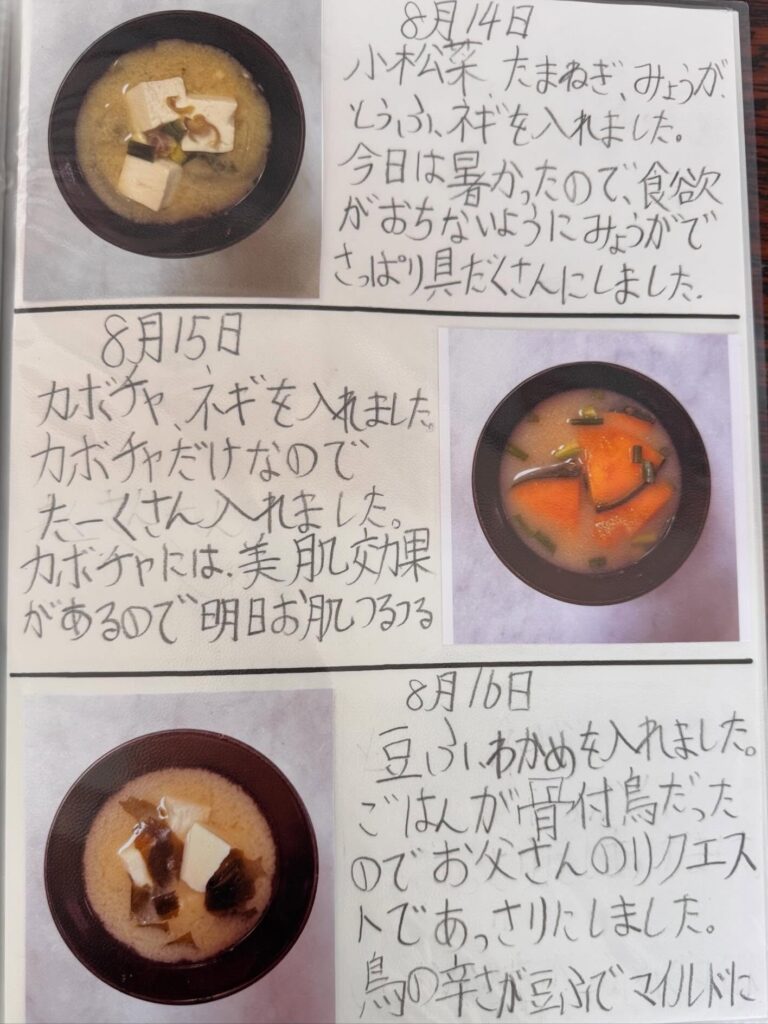 8月14日
小松菜、たまねぎ、みょうが、
とうふ、ネギを入れました。
今日は暑かったので、食欲
がおちないようにみょうがで
さっぱり具だくさんにしました。
8月15日
カボチャ、ネギを入れました。
カボチャだけなので
たーくさん入れました。
カボチャには、美肌効果
があるので明日お肌つるつる
8月16日
豆ふ、わかめを入れました。
ごはんが骨付鳥だった
のでお父さんのリクエス
トであっさりにしました。
鳥の辛さが豆ふでマイルドに